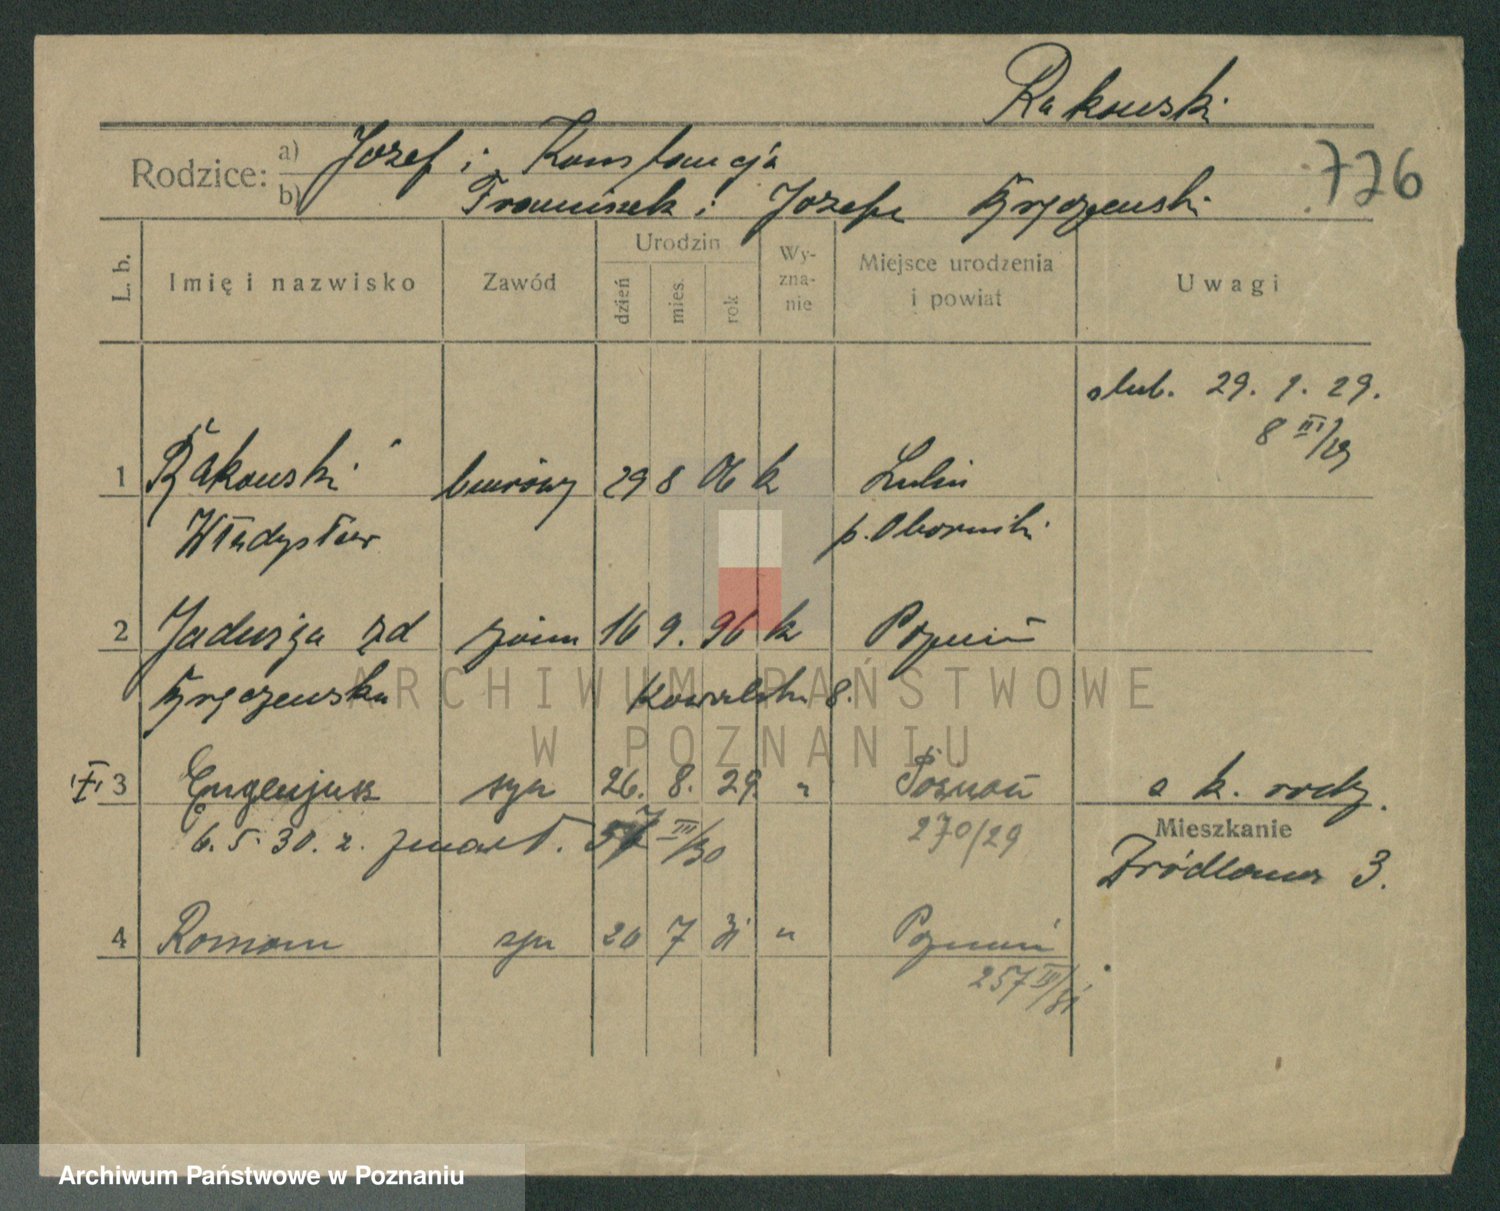 Rakowski
726
Rodzice: a) Jozef i Konstancja
b) Franciszek i Jozefa Kryczewski
L. b. Imię i nazwisko Zawód Urodzin dzień mies. rok Wyznanie Miejsce urodzenia i powiat Uwagi
ślub. 29. 1. 29.
8 III/29
1 Rakowski biurowy 29 8 06 k Lulin
Władysław p. Oborniki
2 Jadwiga zd żona 16 9. 96 k Poznań
Kryczewska Kowalska 8.
3 Eugenjusz syn 26. 8. 29 " Poznań a k. rodz.
6. 5. 30. r. zmarł. III/30 270/29 Mieszkanie
Źródlana 3.
4 Roman syn 20 7 31 " Poznań
257 III/31
ARCHIWUM PAŃSTWOWE
W POZNANIU
Archiwum Państwowe w Poznaniu